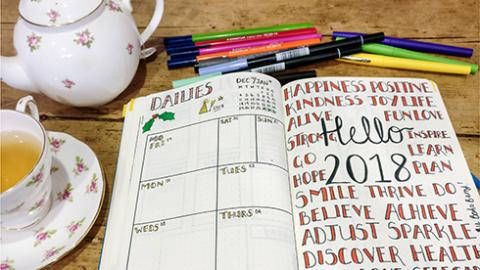 DAILIES
DEC / JAN
MON
FRI
SAT
SUN
MON
TUES
WEDS
THURS
HAPPINESS POSITIVE
KINDNESS JOY LIFE
ALIVE FUN LOVE
STRONG Hello INSPIRE
GO LEARN
HOPE 2018 PLAN
SMILE THRIVE DO
BELIEVE ACHIEVE
ADJUST SPARKLE
DISCOVER HEALTH